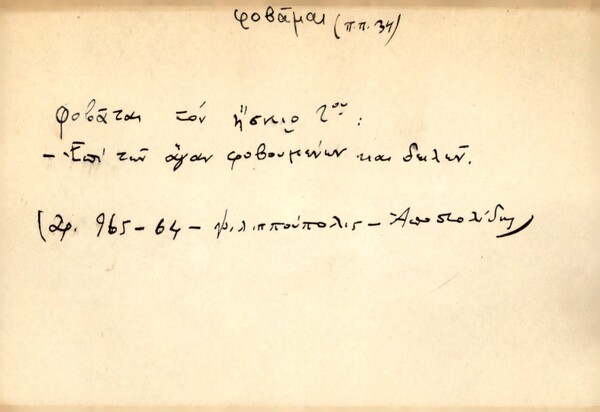 φοβᾶμαι (π.π. 34)
Φοβᾶται τὸν ἥσκιο τ'ου:
- Ἐπὶ τῶν ἄγαν φοβουμένων και δειλῶν.
(Ἀρ. 965-64 - Φιλιππούπολις - Ἀποστολίδης)